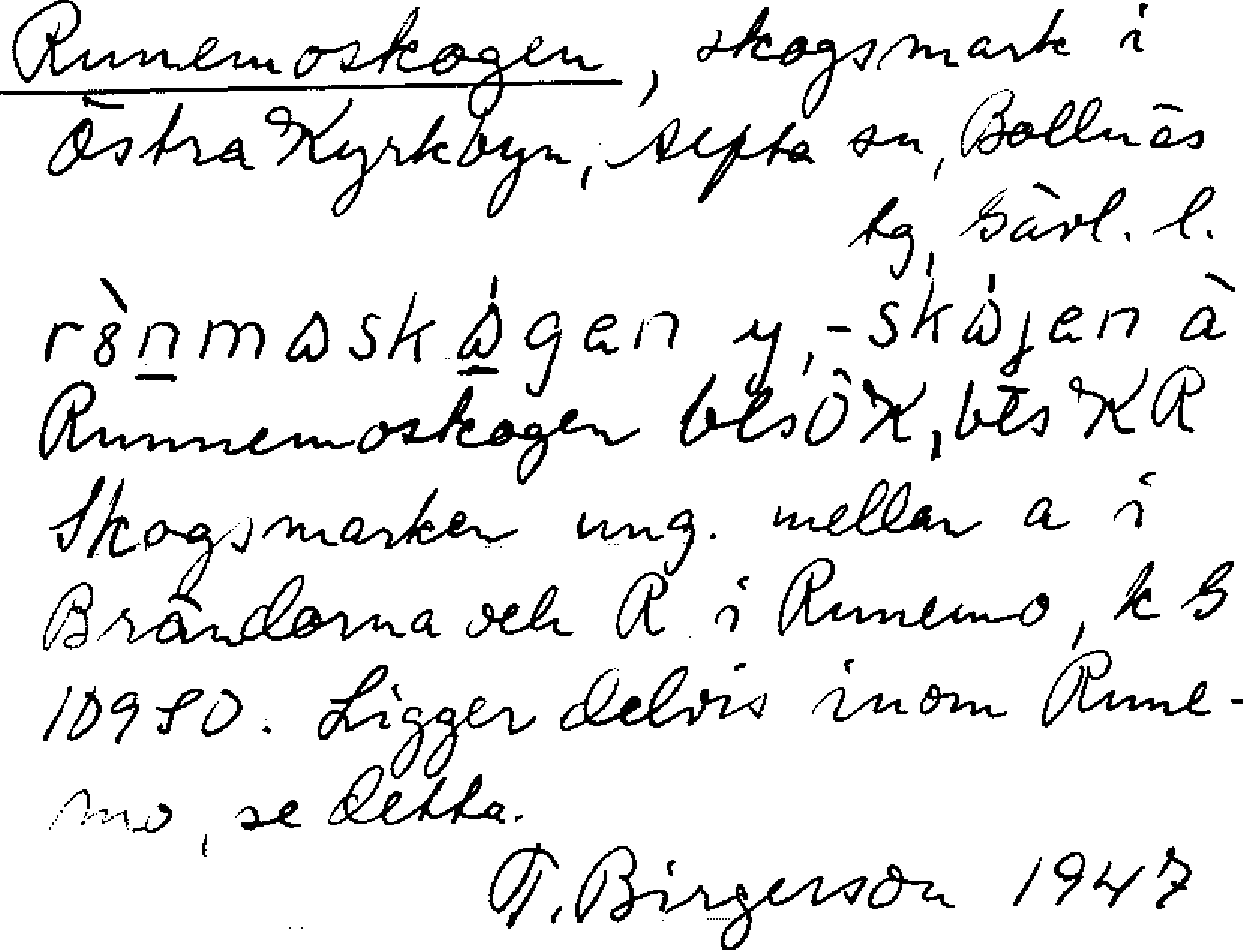 Runemoskogen, skogsmark i
Östra Kyrkbyn, Alfta sn, Bollnäs
tg, Gävl. l.
y, à
Runnemoskogen bes ÖK, bes KR
Skogsmarken ung. mellan a i
Brändorna och R i Runemo, k G
10980. Ligger delvis inom Rune-
mo, se detta.
T. Birgerson 1947